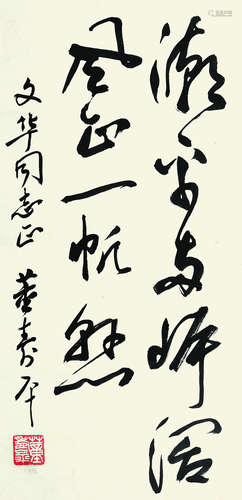 潮平两岸阔
风正一帆悬
文华同志正 董寿平